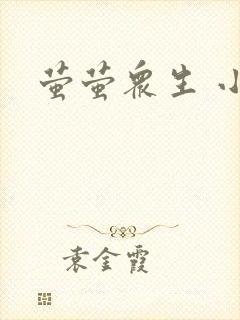 萤萤众生 小
袁金霞